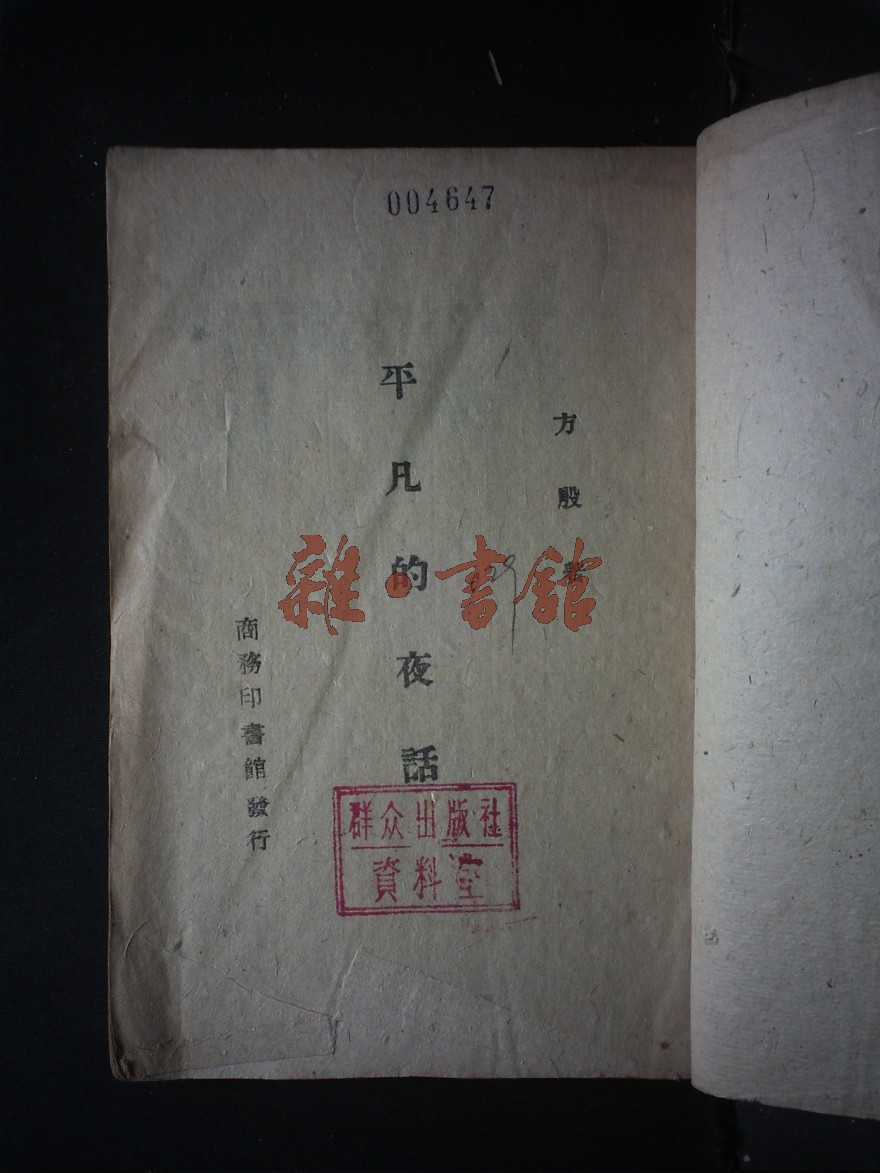 004647
方殷著
平凡的夜話
商務印書館發行
群众出版社
資料室
雜·書館